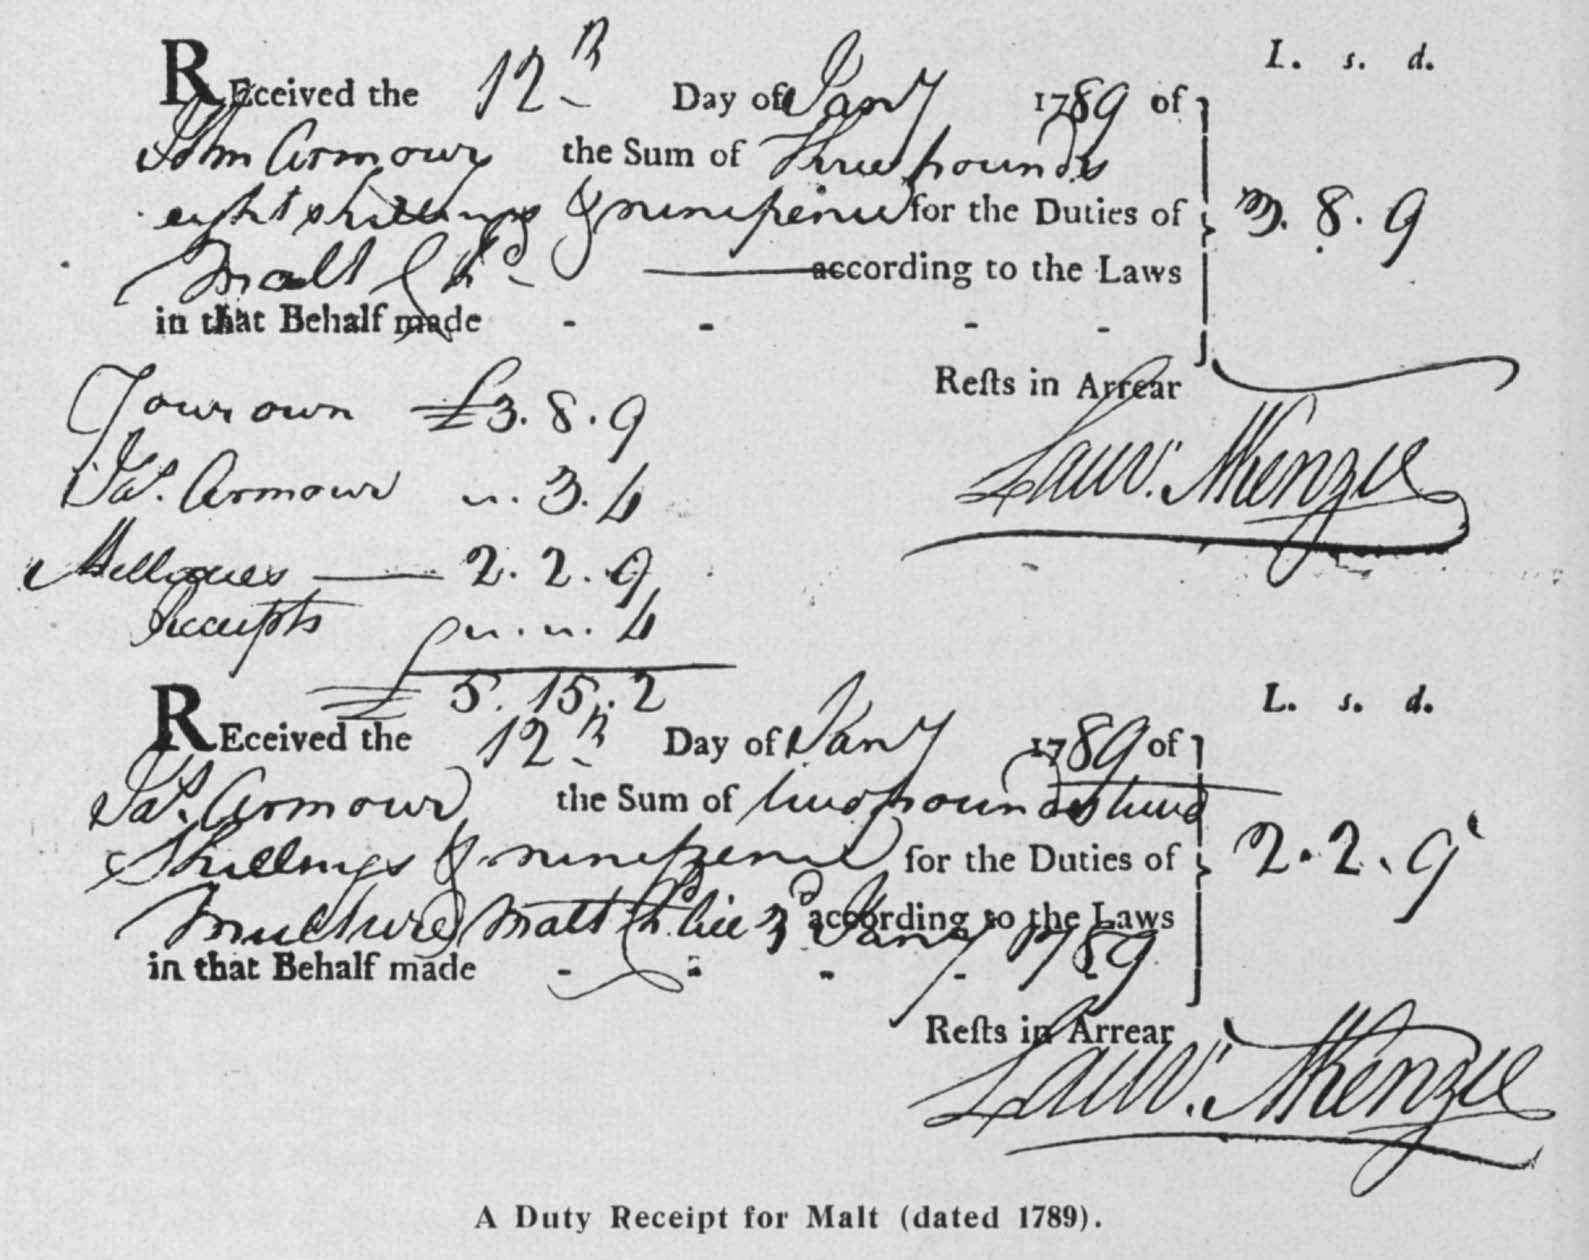 L. s. d.
REceived the 12th Day of Jany 1789 of
John Armour the Sum of three pounds
eight shillings & ninepence for the Duties of 3. 8. 9
Malt according to the Laws
in that Behalf made - - - -
Reſts in Arrear
Your own £3. 8. 9
Jas. Armour ". 3. 4
Lawr. McKenzie
2. 2. 9
Receipts ". ". 4
£ 5. 15. 2
L. s. d.
REceived the 12th Day of Jany 1789 of
Jas. Armour the Sum of two pounds two
Shillings & ninepence for the Duties of 2. 2. 9
Malt 3d Jany 1789 according to the Laws
in that Behalf made - - - - -
Reſts in Arrear
Lawr. McKenzie
A Duty Receipt for Malt (dated 1789).